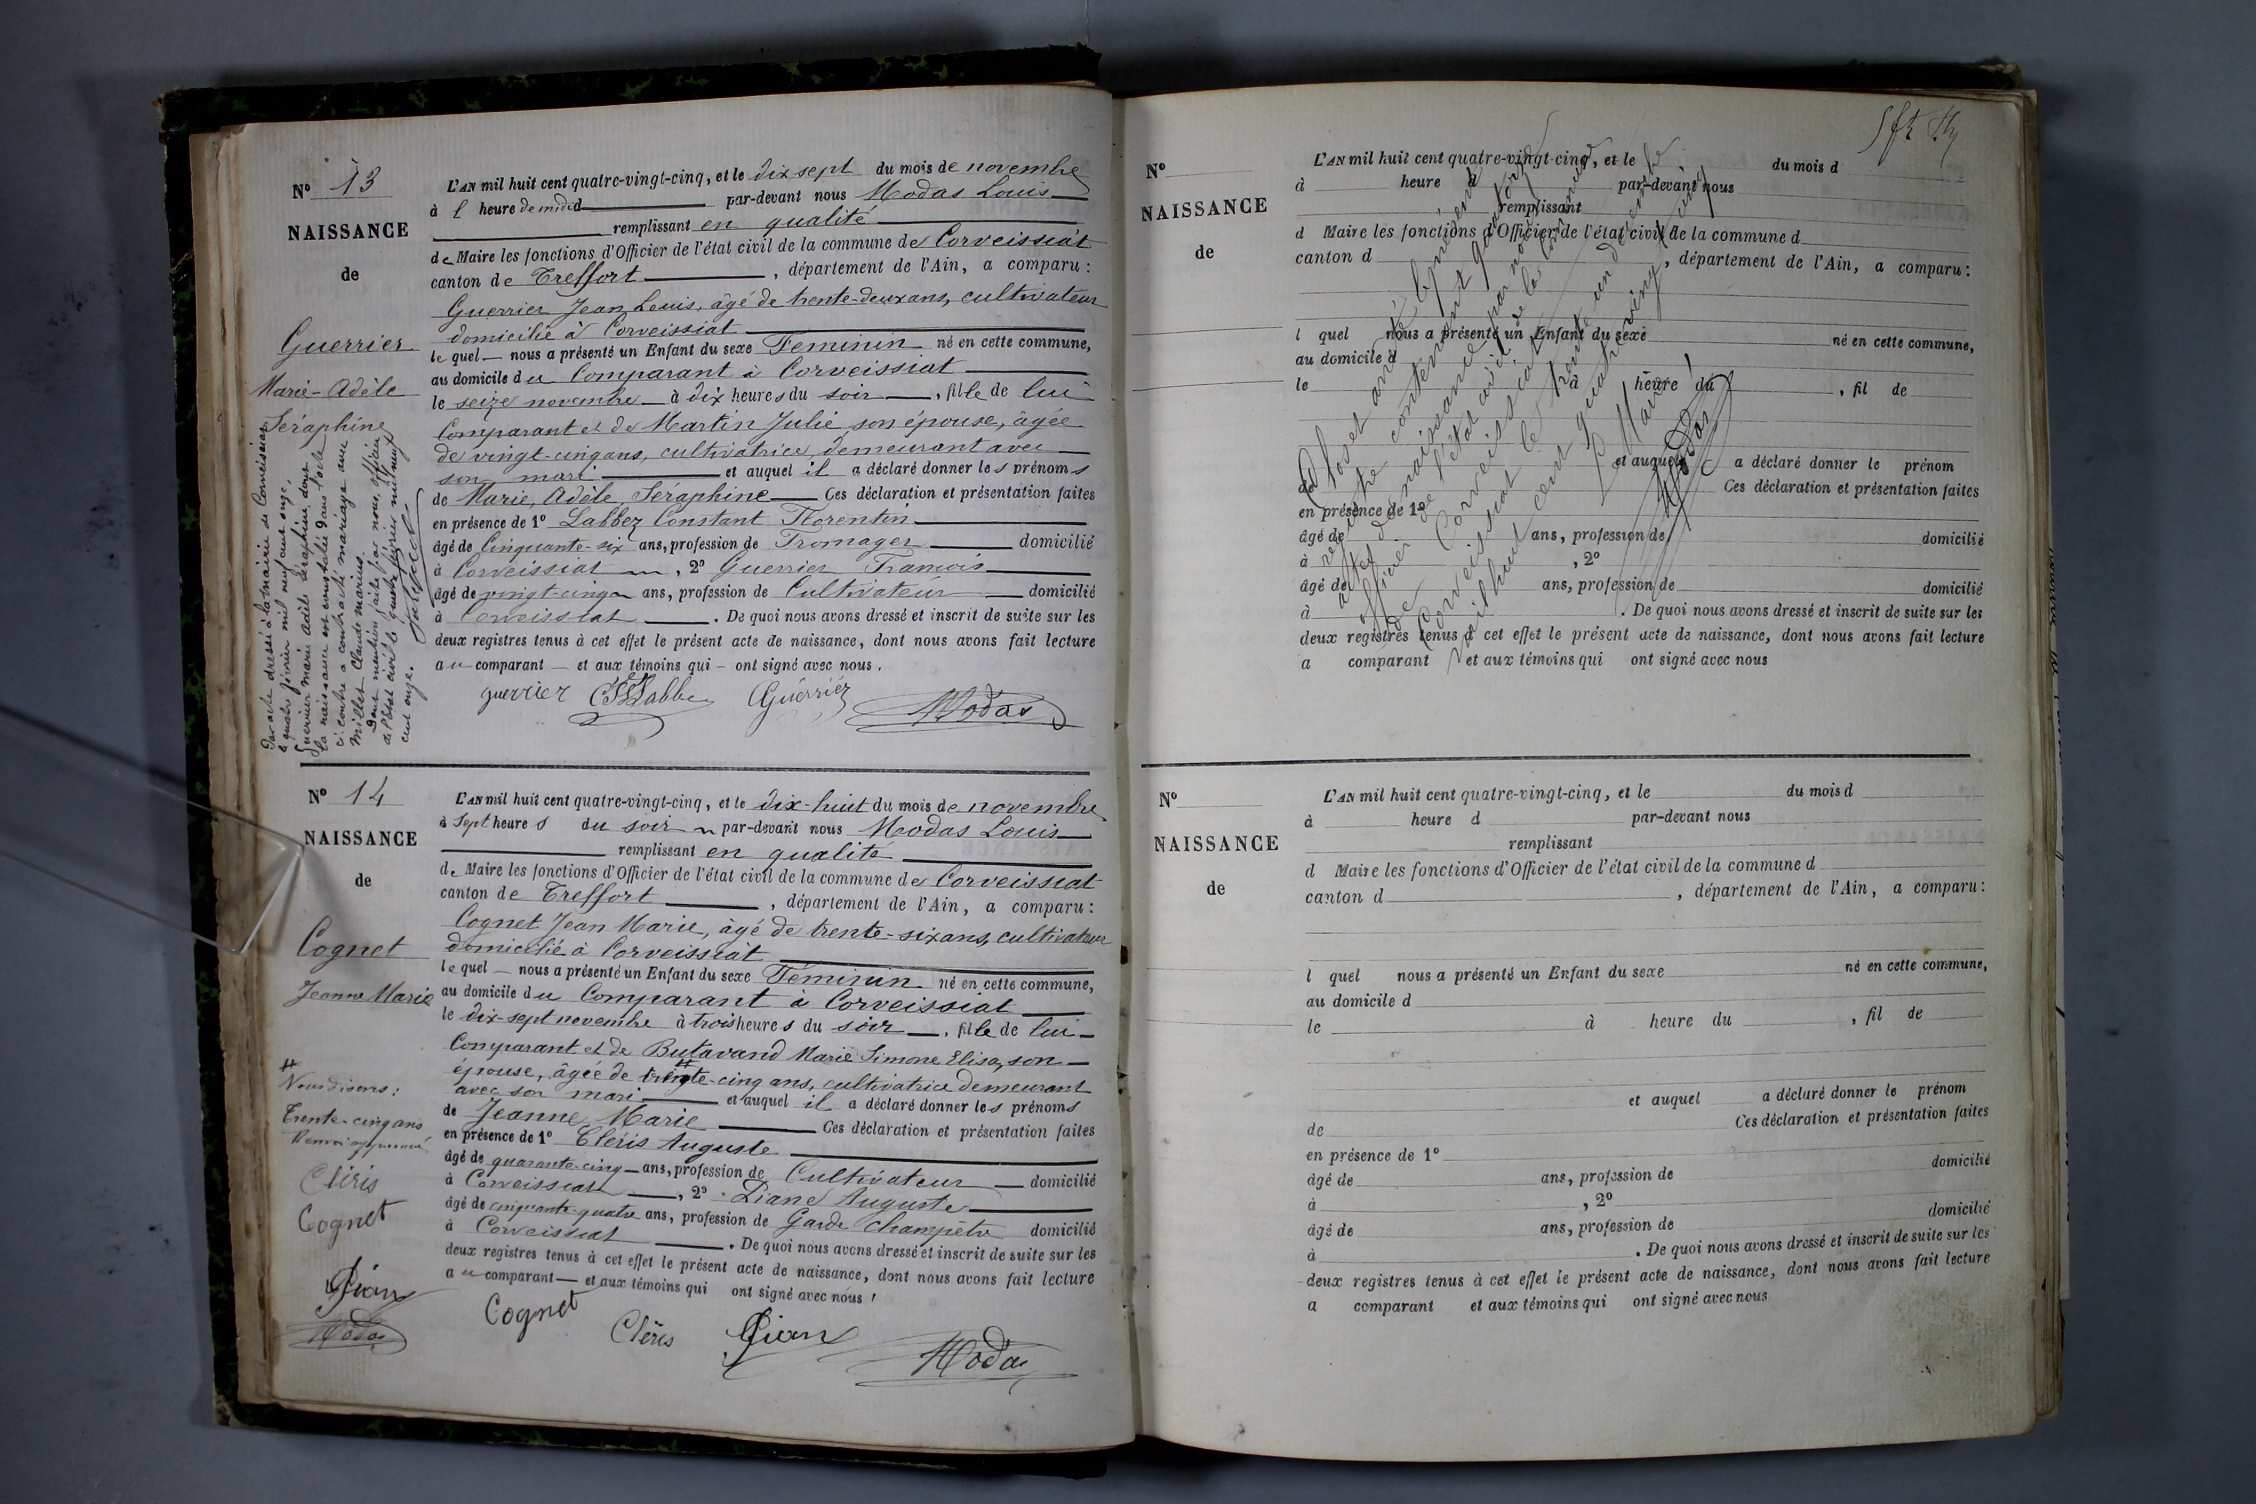 N° 13
NAISSANCE
de
Guerrier
Marie-Adèle
Séraphine
Par acte dressé à la mairie de Corveissiat
le quatre février mil neuf cent onze,
Guerrier Marie Adèle Séraphine, dont
la naissance est constatée dans l'acte
ci-contre a contracté mariage avec
Millet Claude Marius.
Dont mention faite par nous, officier
de l'état civil le quatre février mil neuf
cent onze.
L'AN mil huit cent quatre-vingt-cinq, et le dix sept du mois de novembre
à l heure de midi d par-devant nous Modas Louis
remplissant en qualité
de Maire les fonctions d'Officier de l'état civil de la commune de Corveissiat
canton de Treffort, département de l'Ain, a comparu:
Guerrier Jean Louis, âgé de trente-deux ans, cultivateur
domicilié à Corveissiat
le quel nous a présenté un Enfant du sexe Féminin né en cette commune,
au domicile du Comparant à Corveissiat
le seize novembre à dix heures du soir, fille de lui
Comparant et de Martin Julie son épouse, âgée
de vingt-cinq ans, cultivatrice demeurant avec
son mari et auquel il a déclaré donner les prénoms
de Marie, Adèle, Séraphine Ces déclaration et présentation faites
en présence de 1° Labbez Constant Florentin
âgé de Cinquante-six ans, profession de Fromager domicilié
à Corveissiat, 2° Guerrier François
âgé de vingt-cinq ans, profession de Cultivateur domicilié
à Corveissiat. De quoi nous avons dressé et inscrit de suite sur les
deux registres tenus à cet effet le présent acte de naissance, dont nous avons fait lecture
au comparant et aux témoins qui ont signé avec nous.
guerrier Labbe Guérriér Modas
N° 14
NAISSANCE
de
Cognet
Jeanne Marie
#
Nous disons:
Trente-cinq ans
Renvoi approuvé
Cléris
Cognet
Pian
Modas
L'AN mil huit cent quatre-vingt-cinq, et le dix-huit du mois de novembre
à sept heures du soir par-devant nous Modas Louis
remplissant en qualité
de Maire les fonctions d'Officier de l'état civil de la commune de Corveissiat
canton de Treffort, département de l'Ain, a comparu:
Cognet Jean Marie, âgé de trente-six ans, cultivateur
domicilié à Corveissiat
le quel nous a présenté un Enfant du sexe Féminin né en cette commune,
au domicile du Comparant à Corveissiat
le dix-sept novembre à trois heures du soir, fille de lui
Comparant et de Butavand Marie Simone Elisa, son
épouse, âgée de trente-cinq ans, cultivatrice demeurant
avec son mari et auquel il a déclaré donner les prénoms
de Jeanne Marie Ces déclaration et présentation faites
en présence de 1° Cléris Auguste
âgé de quarante-cinq ans, profession de Cultivateur domicilié
à Corveissiat, 2° Piane Auguste
âgé de cinquante-quatre ans, profession de Garde Champêtre domicilié
à Corveissiat. De quoi nous avons dressé et inscrit de suite sur les
deux registres tenus à cet effet le présent acte de naissance, dont nous avons fait lecture
au comparant et aux témoins qui ont signé avec nous
Cognet Cléris Pian Modas
N°
NAISSANCE
de
L'AN mil huit cent quatre-vingt-cinq, et le du mois d
à heure d par-devant nous
remplissant
d Maire les fonctions d'Officier de l'état civil de la commune d
canton d, département de l'Ain, a comparu:
l quel nous a présenté un Enfant du sexe né en cette commune,
au domicile d
le à heure du, fil de
et auquel a déclaré donner le prénom
de Ces déclaration et présentation faites
en présence de 1°
âgé de ans, profession de domicilié
à, 2°
âgé de ans, profession de domicilié
à. De quoi nous avons dressé et inscrit de suite sur les
deux registres tenus à cet effet le présent acte de naissance, dont nous avons fait lecture
a comparant et aux témoins qui ont signé avec nous
Clos et arrêté le présent
registre contenant quatorze
actes de naissance par nous
officier de l'état civil de la commune
de Corveissiat
Corveissiat le trente un décembre
mil huit cent quatre vingt cinq
Le Maire
Modas
N°
NAISSANCE
de
L'AN mil huit cent quatre-vingt-cinq, et le du mois d
à heure d par-devant nous
remplissant
d Maire les fonctions d'Officier de l'état civil de la commune d
canton d, département de l'Ain, a comparu:
l quel nous a présenté un Enfant du sexe né en cette commune,
au domicile d
le à heure du, fil de
et auquel a déclaré donner le prénom
de Ces déclaration et présentation faites
en présence de 1°
âgé de ans, profession de domicilié
à, 2°
âgé de ans, profession de domicilié
à. De quoi nous avons dressé et inscrit de suite sur les
deux registres tenus à cet effet le présent acte de naissance, dont nous avons fait lecture
a comparant et aux témoins qui ont signé avec nous